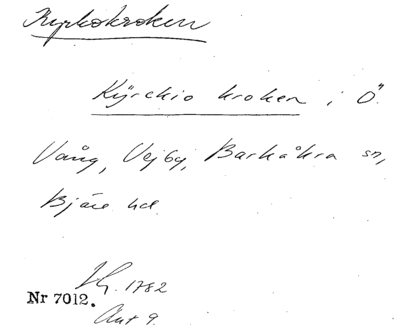 Kyrkokroken
Kÿrckio kroken i Ö.
Vång, Vejby, Barkåkra sn,
Bjäre hd.
1782
Nr 7012.
Akt 9.